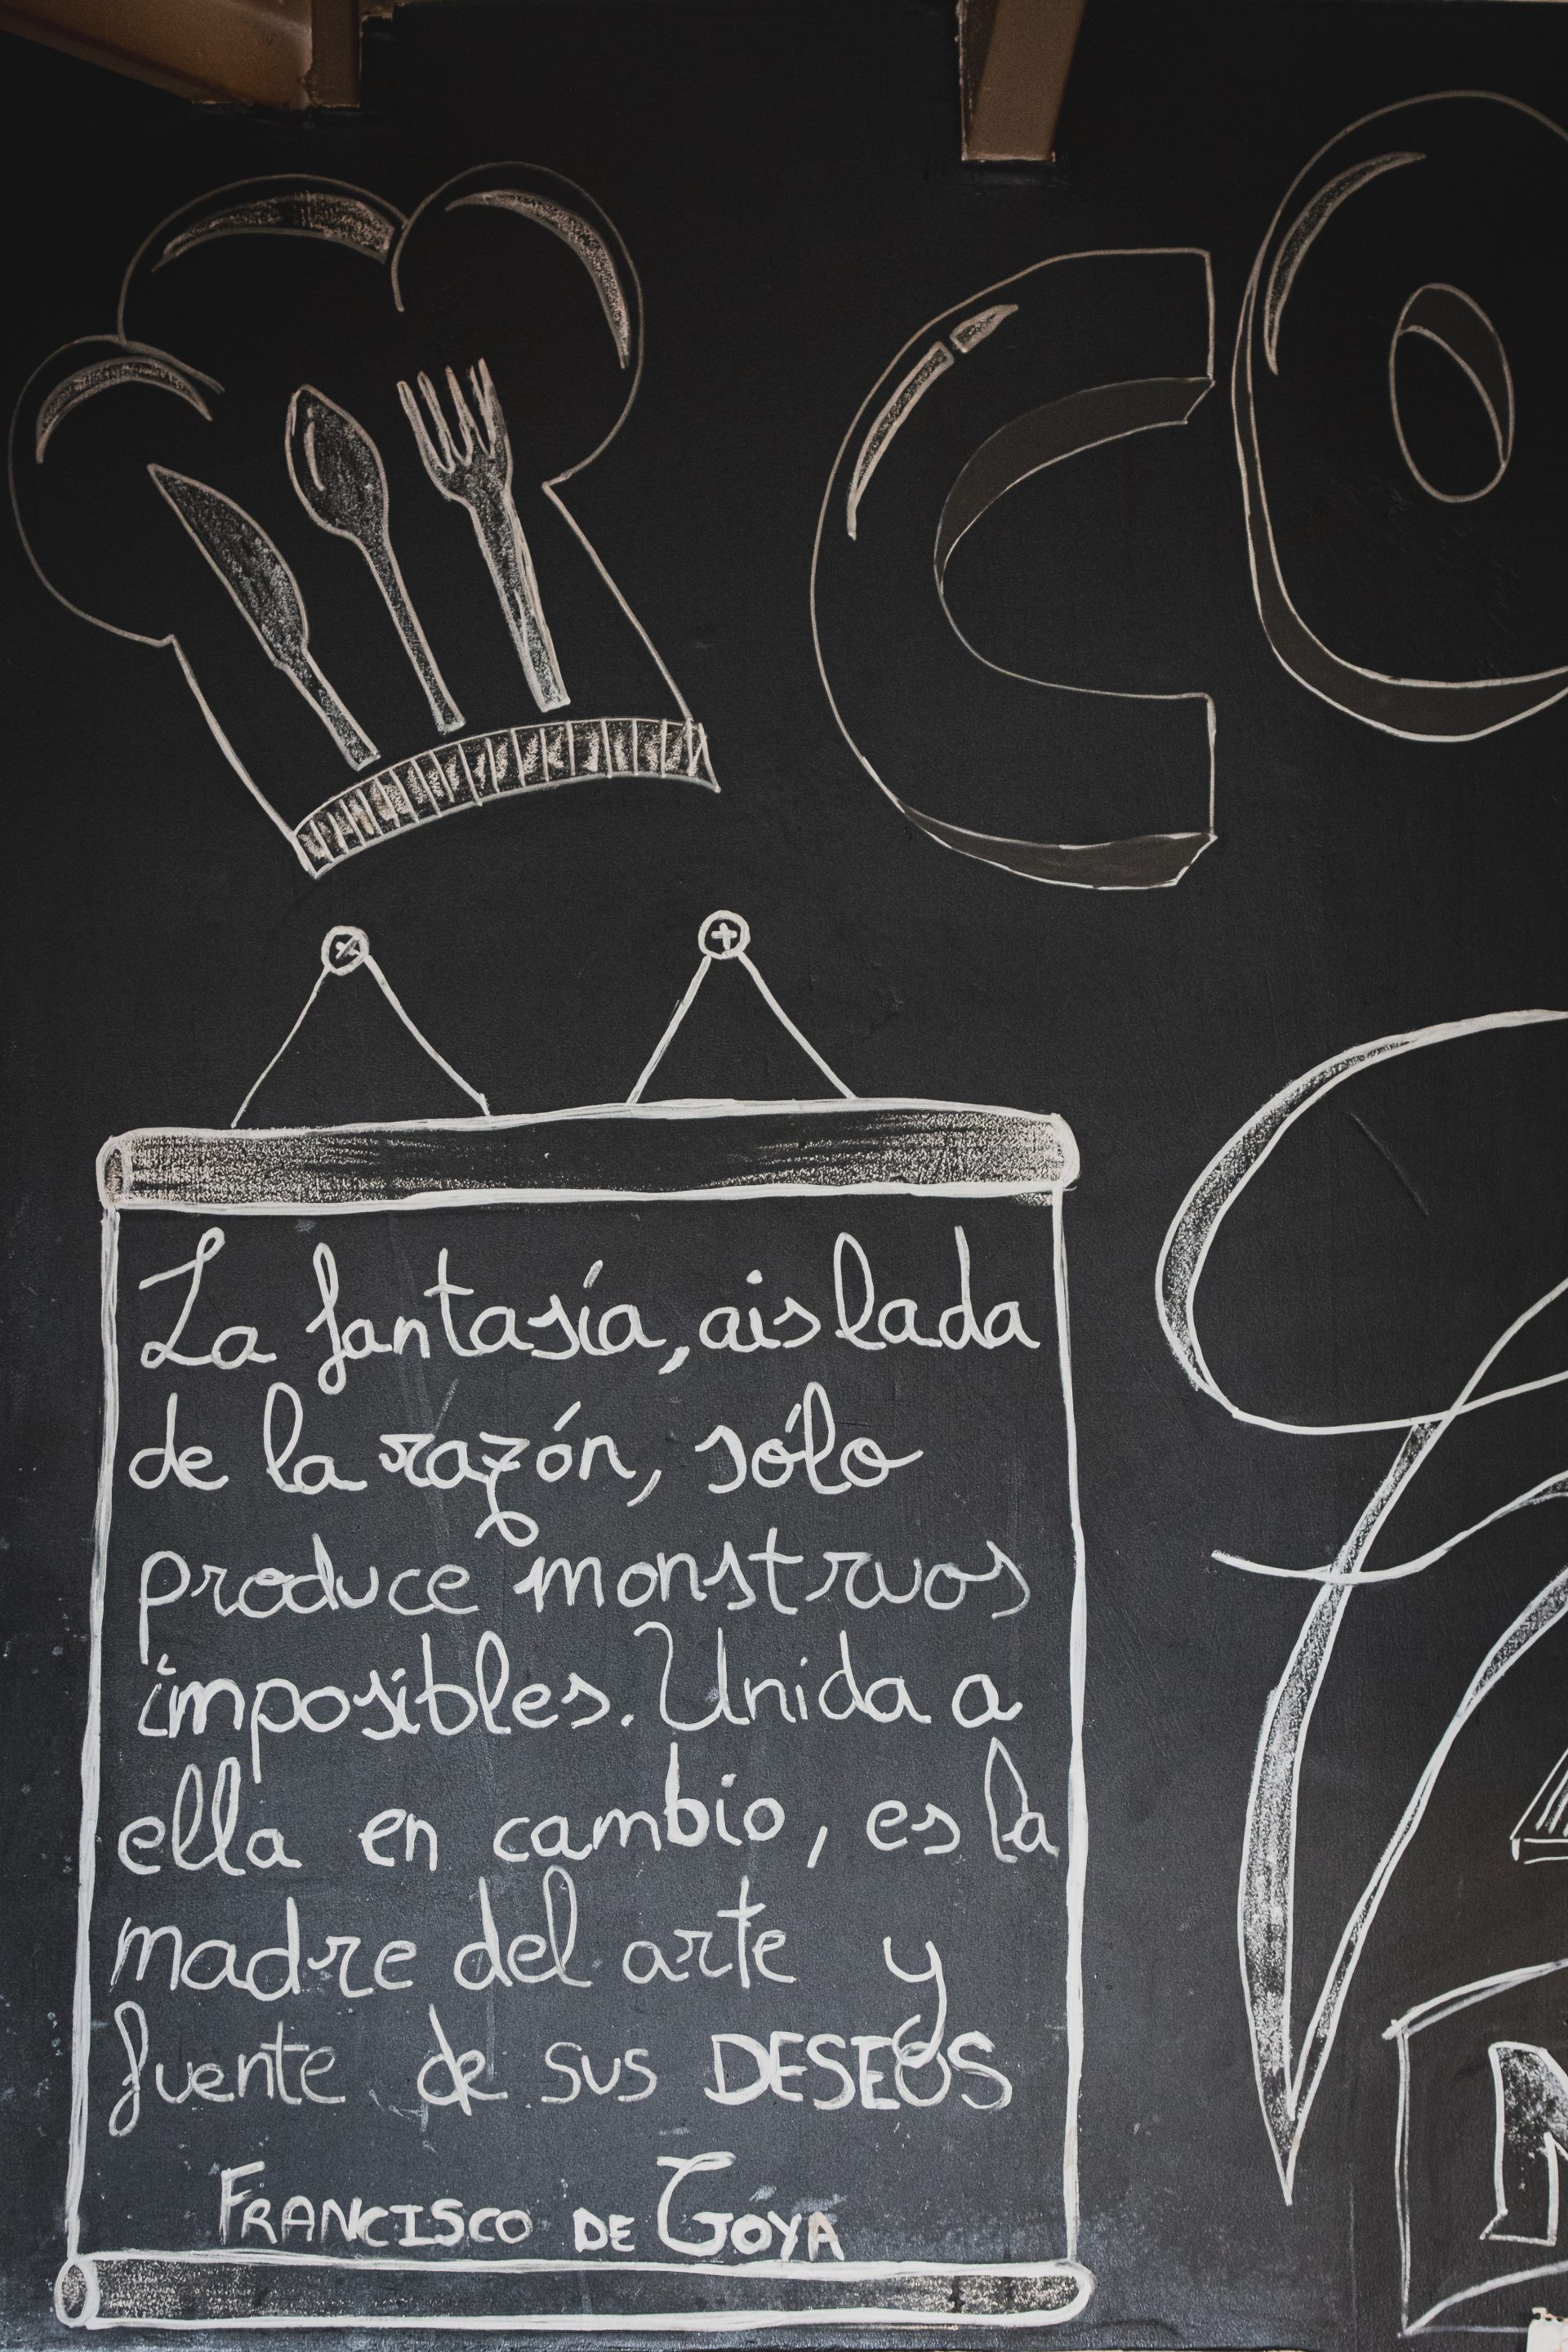 CO
La fantasía, aislada
de la razón, sólo
produce monstruos
imposibles. Unida a
ella en cambio, es la
madre del arte y
fuente de sus DESEOS
FRANCISCO DE GOYA